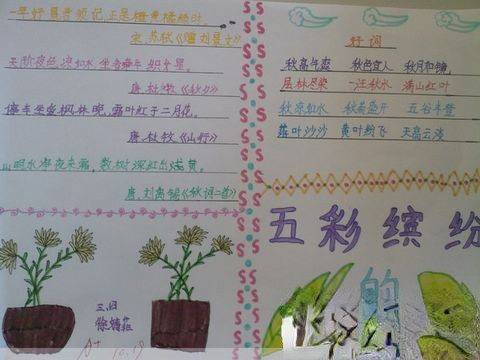 一年好景君须记,正是橙黄橘绿时。
宋.苏轼《赠刘景文》
天阶夜色凉如水,坐看牵牛织女星。
唐.杜牧《秋夕》
停车坐爱枫林晚,霜叶红于二月花。
唐.杜牧《山行》
山明水净夜来霜,数树深红出浅黄。
唐.刘禹锡《秋词二首》
三.四
A+ 10.19
好词
秋高气 秋色宜人 秋月如镜
层林尽染 一汪秋水 满山红叶
秋凉如水 秋菊盛开 五谷丰登
落叶沙沙 黄叶纷飞 天高云淡
五彩缤纷
的